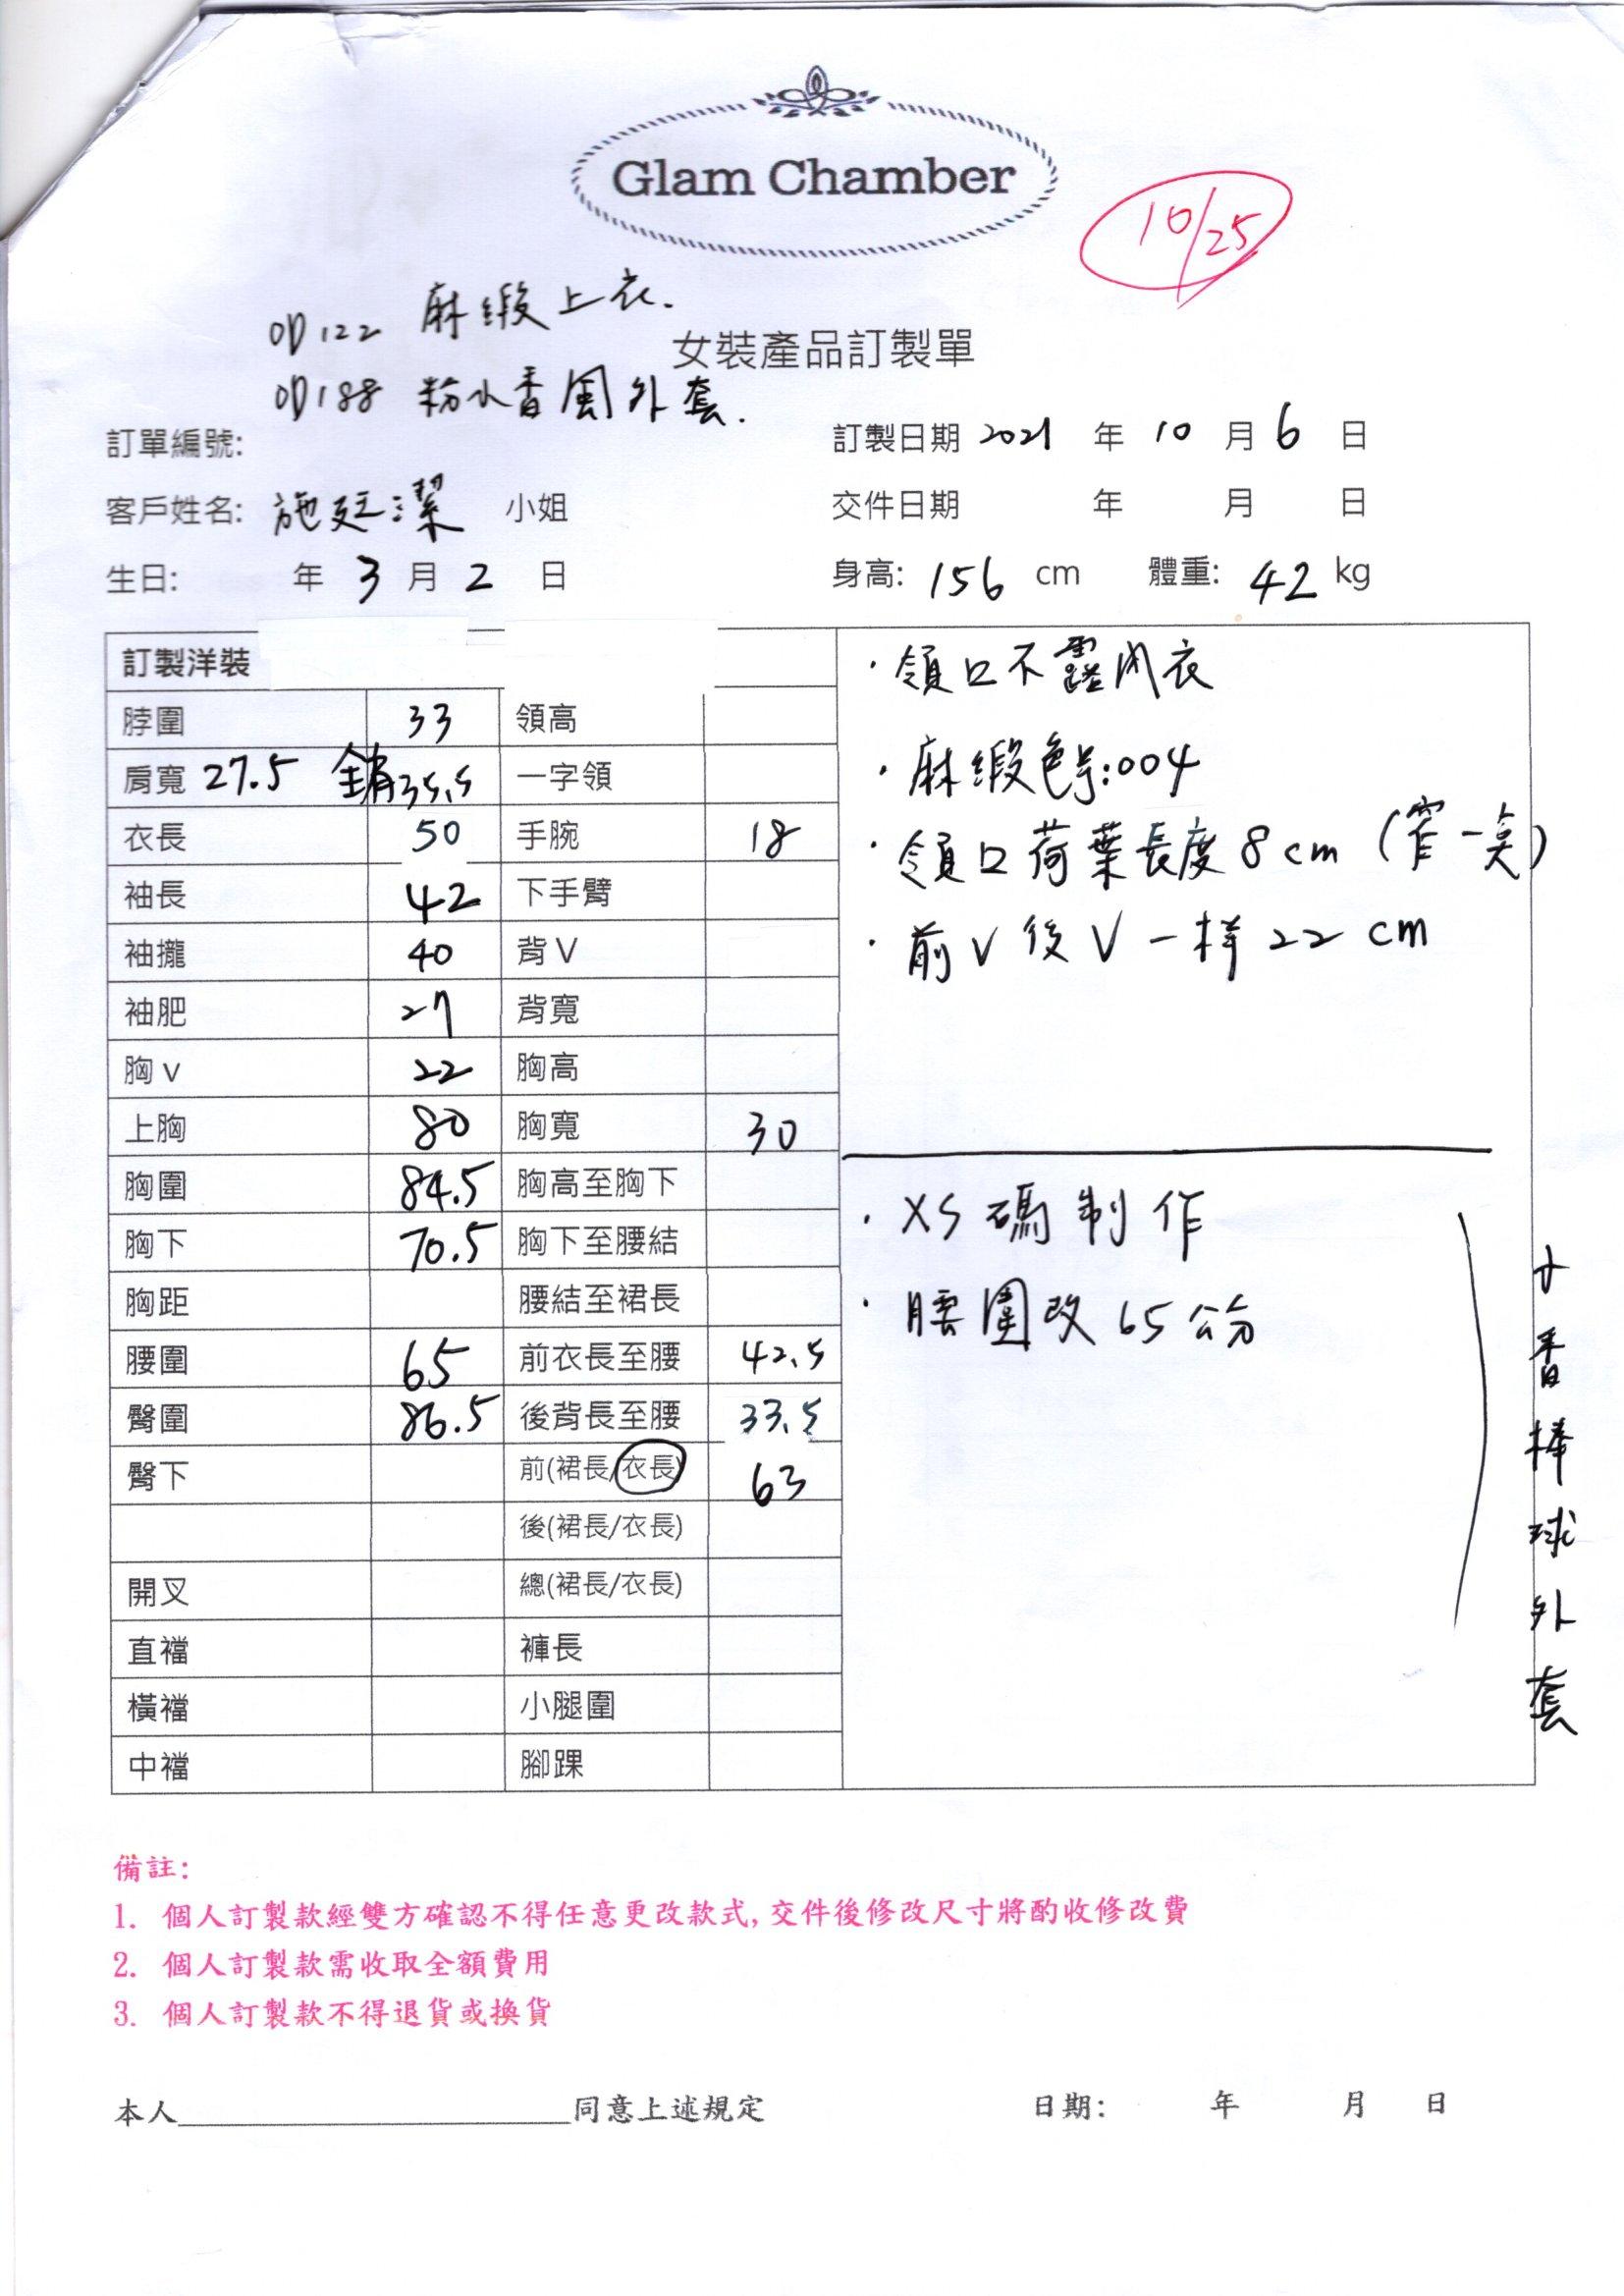 Glam Chamber
10/25
OD122 麻緞上衣.
女裝產品訂製單
OD188 粉小香風外套.
訂單編號:
訂製日期 2021 年 10 月 6 日
客戶姓名: 施廷潔 小姐
交件日期 年 月 日
生日: 年 3 月 2 日
身高: 156 cm 體重: 42 kg
訂製洋裝
脖圍 33 領高
肩寬 27.5 全肩35.5 一字領
衣長 50 手腕 18
袖長 42 下手臂
袖攏 40 背V
袖肥 27 背寬
胸v 22 胸高
上胸 80 胸寬 30
胸圍 84.5 胸高至胸下
胸下 70.5 胸下至腰結
胸距 腰結至裙長
腰圍 65 前衣長至腰 42.5
臀圍 86.5 後背長至腰 33.5
臀下 前(裙長/衣長) 63
後(裙長/衣長)
開叉 總(裙長/衣長)
直襠 褲長
橫襠 小腿圍
中襠 腳踝
·領口不露內衣
·麻緞色号:004
·領口荷葉長度8cm(窄一点)
·前V後V一样22cm
·XS碼制作
·腰圍改65公分
小香棒球外套
備註:
1. 個人訂製款經雙方確認不得任意更改款式,交件後修改尺寸將酌收修改費
2. 個人訂製款需收取全額費用
3. 個人訂製款不得退貨或換貨
本人____________________同意上述規定
日期: 年 月 日